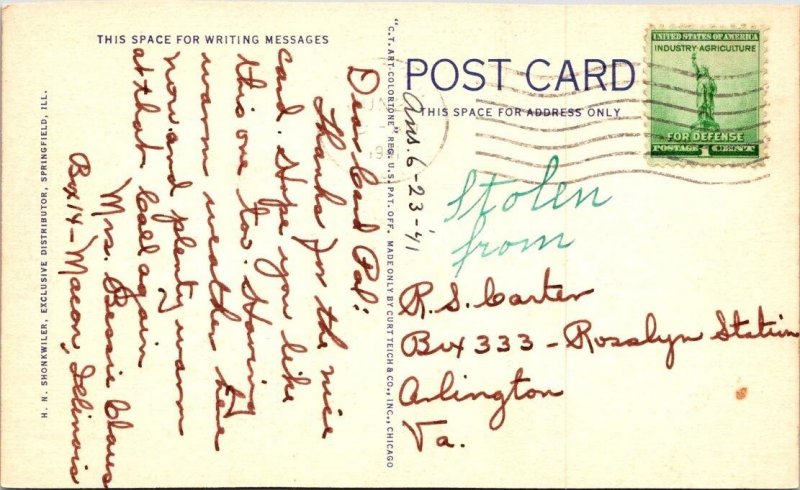 THIS SPACE FOR WRITING MESSAGES
Dear Card Pal:
Thanks for the nice
card. Hope you like
this one too. Having
warm weather here
now and plenty warm
at that. Call again
Mrs. Bessie Claus
Box 14 - Macon, Illinois
H. N. SHONKWILER, EXCLUSIVE DISTRIBUTOR, SPRINGFIELD, ILL.
"C.T. ART-COLORTONE" REG. U.S. PAT. OFF. MADE ONLY BY CURT TEICH & CO., INC., CHICAGO
Ans. 6-23-'41
POST CARD
THIS SPACE FOR ADDRESS ONLY
UNITED STATES OF AMERICA
INDUSTRY AGRICULTURE
FOR DEFENSE
POSTAGE 1 CENT
Stolen
from
R. S. Carter
Box 333 - Rosslyn Station
Arlington
Va.